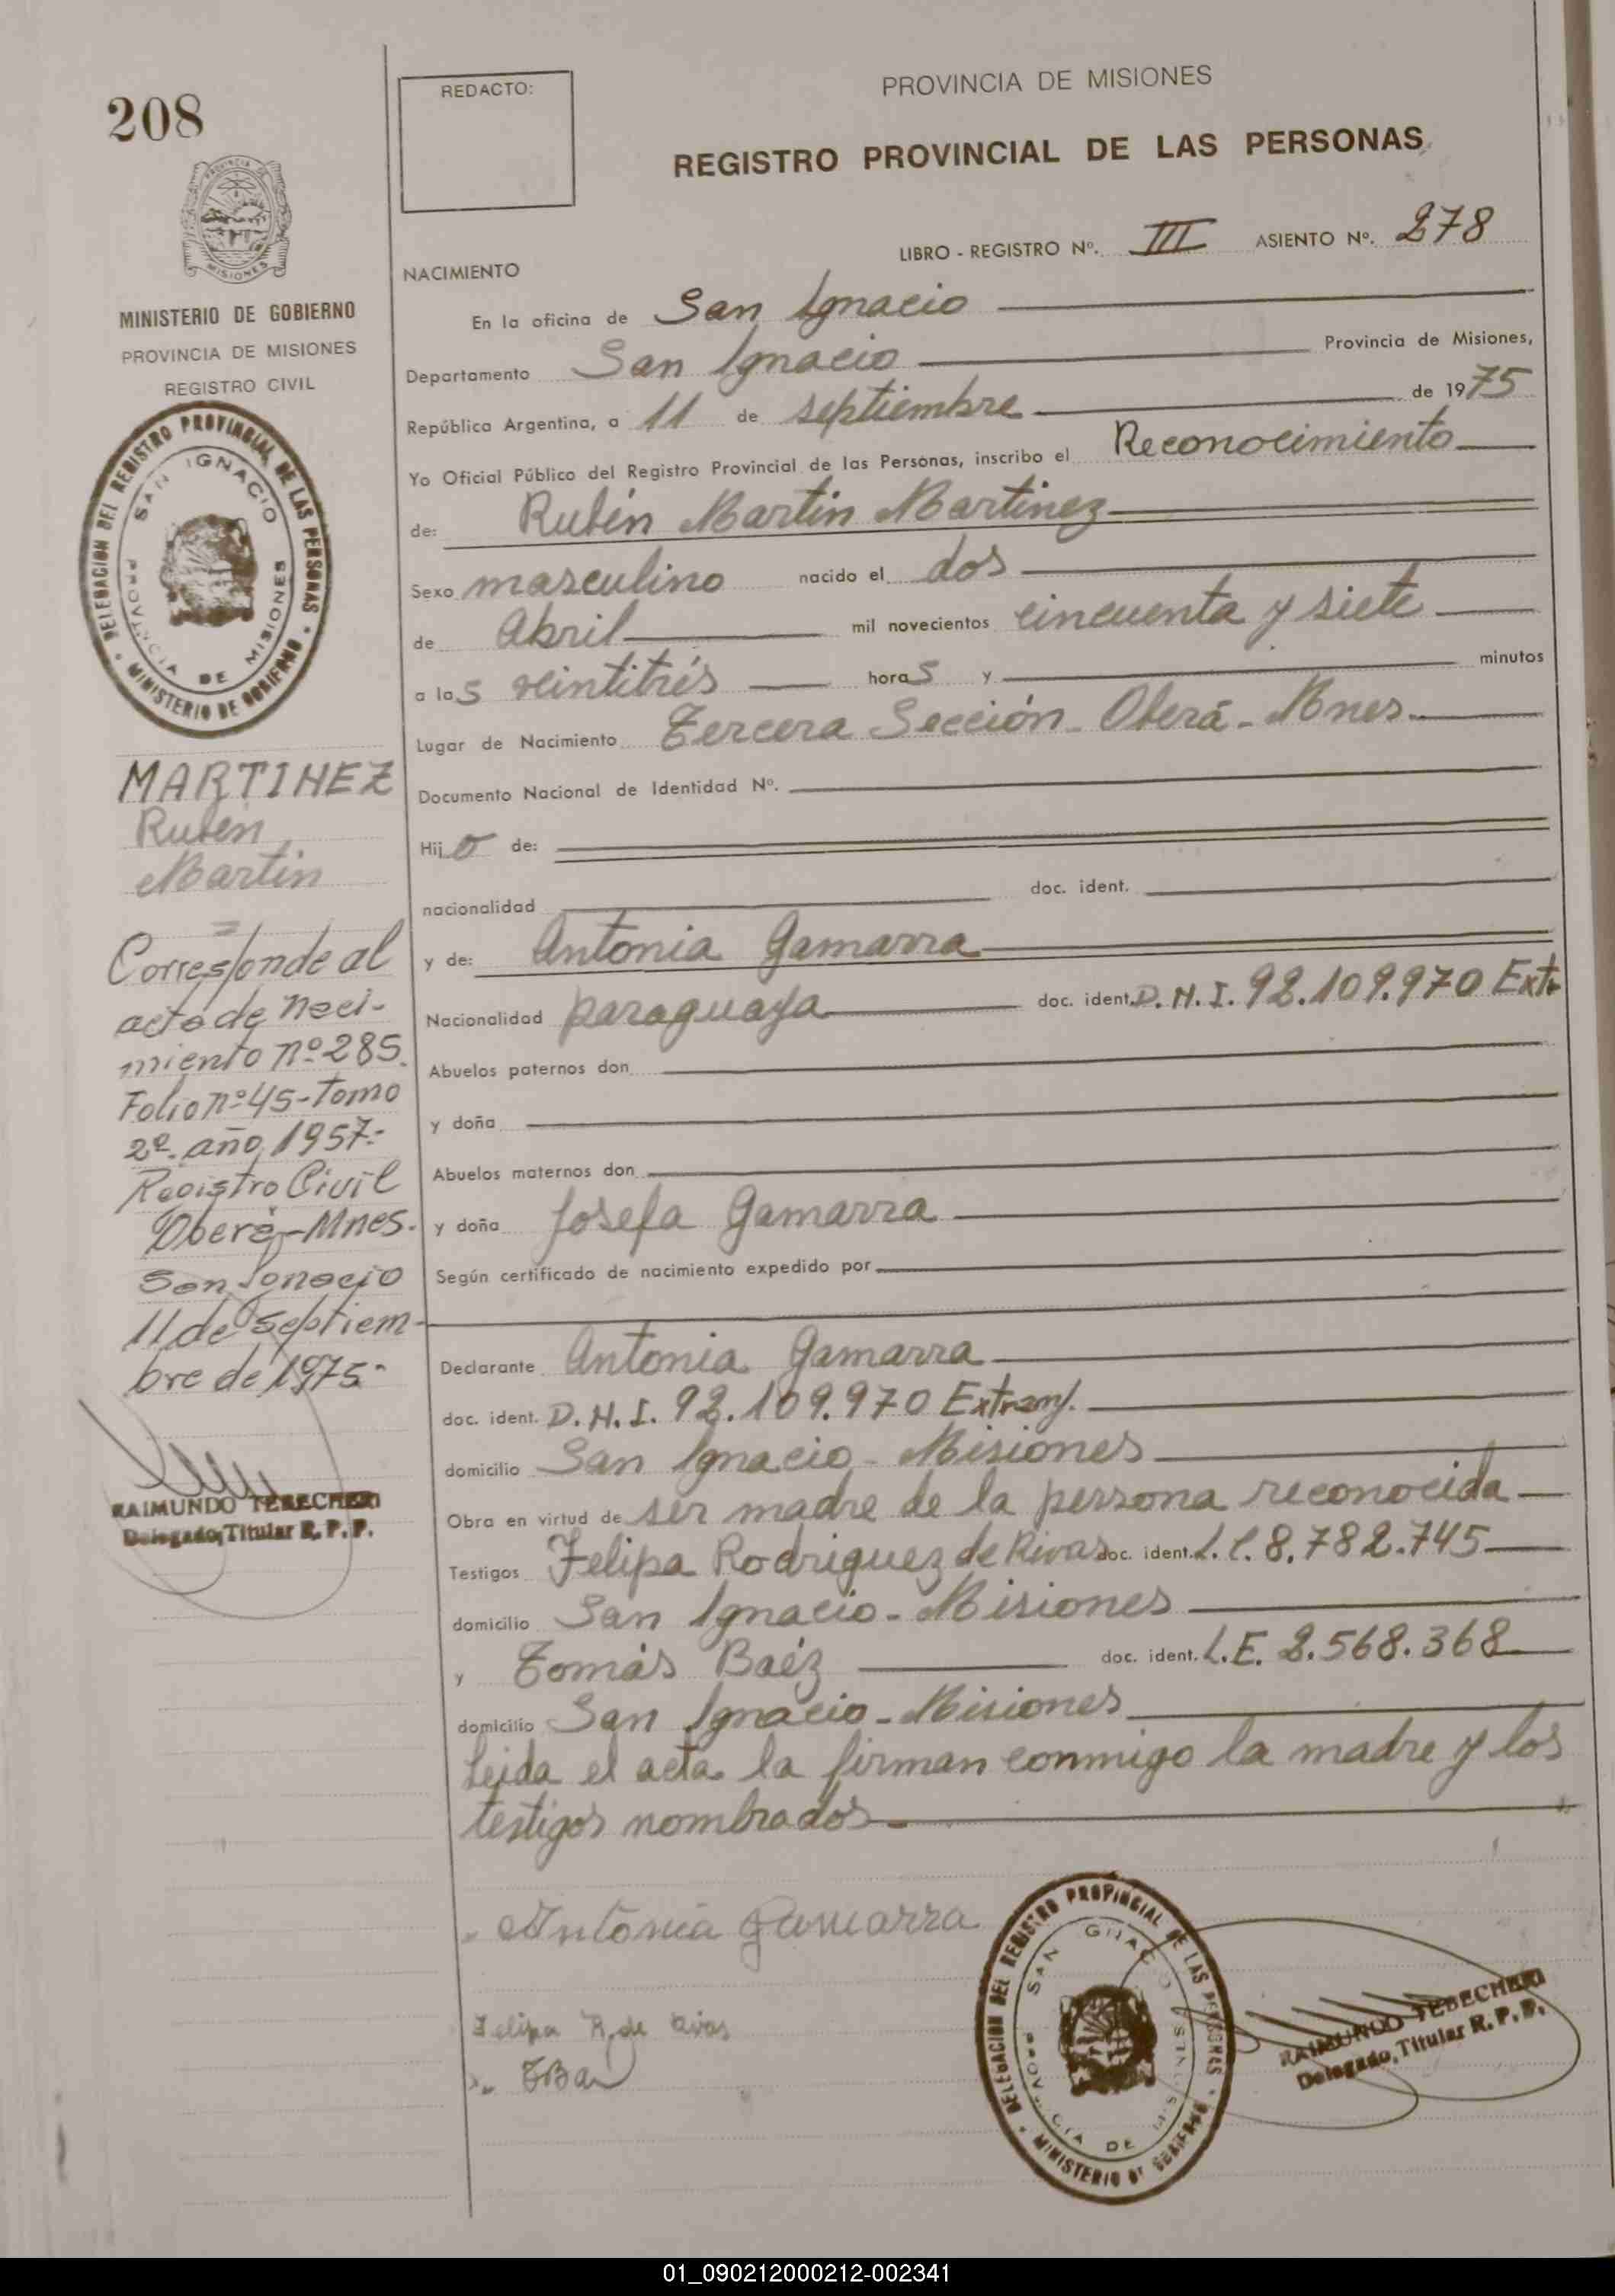 208
PROVINCIA DE MISIONES
MINISTERIO DE GOBIERNO
PROVINCIA DE MISIONES
REGISTRO CIVIL
DELEGACION DEL REGISTRO PROVINCIAL DE LAS PERSONAS
SAN IGNACIO
PROVINCIA DE MISIONES
MINISTERIO DE GOBIERNO
MARTINEZ
Rubén
Martin
Corresponde al
acta de naci-
miento nº 285
Folio nº 45-Tomo
2º. año 1957.-
Registro Civil
Oberá-Mnes.
San Ignacio
11 de septiem-
bre de 1975.-
RAIMUNDO TEBECHERI
Delegado, Titular R. P. P.
REDACTO:
PROVINCIA DE MISIONES
REGISTRO PROVINCIAL DE LAS PERSONAS
LIBRO - REGISTRO Nº. III ASIENTO Nº. 278
NACIMIENTO
En la oficina de San Ignacio
Departamento San Ignacio Provincia de Misiones,
República Argentina, a 11 de septiembre de 1975
Yo Oficial Público del Registro Provincial de las Personas, inscribo el Reconocimiento
de: Rubén Martin Martinez
Sexo masculino nacido el dos
de Abril mil novecientos cincuenta y siete
a las veintitrés horas y minutos
Lugar de Nacimiento Tercera Sección - Oberá - Mnes.
Documento Nacional de Identidad Nº.
Hijo de:
nacionalidad doc. ident.
y de: Antonia Gamarra
Nacionalidad paraguaya doc. ident. D.N.I. 92.109.970 Extr.
Abuelos paternos don
y doña
Abuelos maternos don
y doña Josefa Gamarra
Según certificado de nacimiento expedido por
Declarante Antonia Gamarra
doc. ident. D.N.I. 92.109.970 Extranj.
domicilio San Ignacio - Misiones
Obra en virtud de ser madre de la persona reconocida
Testigos Felipa Rodriguez de Rivas doc. ident. L.C. 8.782.745
domicilio San Ignacio - Misiones
y Tomás Baéz doc. ident. L.E. 2.568.368
domicilio San Ignacio - Misiones
Leida el acta la firman conmigo la madre y los
testigos nombrados.-
Antonia Gamarra
Felipa R. de Rivas
DELEGACION DEL REGISTRO PROVINCIAL DE LAS PERSONAS
SAN IGNACIO
PROVINCIA DE MISIONES
MINISTERIO DE GOBIERNO
RAIMUNDO TEBECHERI
Delegado, Titular R. P. P.
01_090212000212-002341